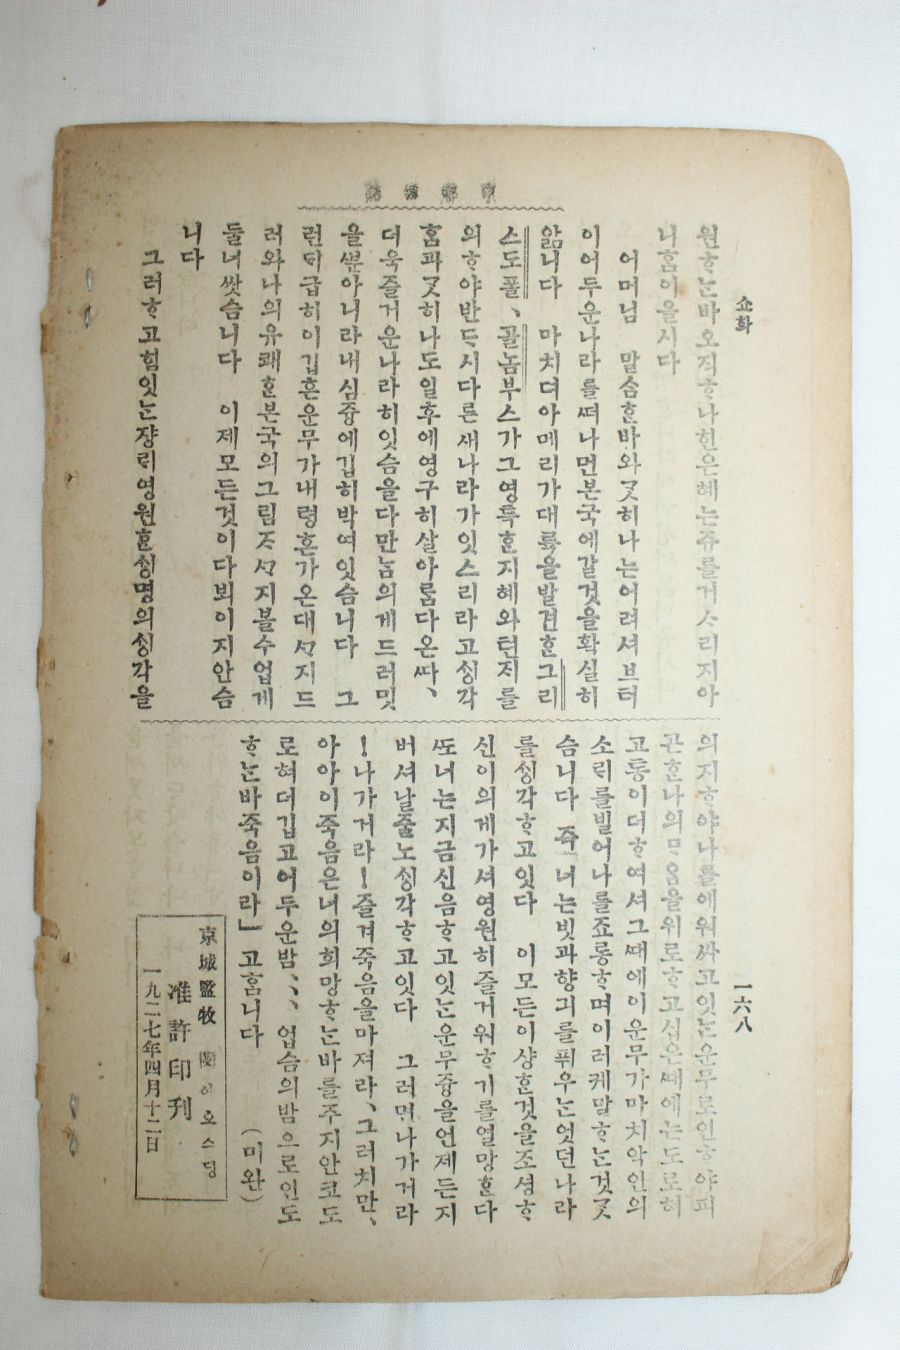 쇼화
一六八
원ᄒᆞᄂᆞᆫ바오직ᄒᆞ나힌은혜는쥬를거ᄉᆞ리지아
니홈이올시다
어머님 말ᄉᆞᆷᄒᆞᆫ바와ᄀᆞᆺ히나는어려셔브터
이어두운나라를ᄯᅥ나면본국에갈것을확실히
압니다 마치뎌아메리가대륙을발견ᄒᆞᆫ그리
스도폴、골놈부스가그영특ᄒᆞᆫ지혜와텬ᄌᆡ를
의ᄒᆞ야반ᄃᆞ시다른새나라가잇스리라고ᄉᆡᆼ각
홈과ᄀᆞᆺ히나도일후에영구히살아름다온ᄯᅡ、
더욱즐거운나라히잇슴을다만놈의게드러밋
을ᄲᅮᆫ아니라내심즁에깁히박여잇슴니다 그
런ᄃᆡ급히이깁흔운무가내령혼가온대ᄭᆞ지드
러와나의유쾌ᄒᆞᆫ본국의그림ᄌᆞᄭᆞ지볼수업게
둘너쌋슴니다 이제모든것이다뵈이지안슴
니다
그러ᄒᆞ고힘잇ᄂᆞᆫ쟝ᄅᆡ영원ᄒᆞᆫᄉᆡᆼ명의ᄉᆡᆼ각을
의지ᄒᆞ야나를에워싸고잇ᄂᆞᆫ운무로인ᄒᆞ야피
곤ᄒᆞᆫ나의ᄆᆞᄋᆞᆷ을위로ᄒᆞ고십은ᄯᅢ에는도로혀
고통이더ᄒᆞ여셔그ᄯᅢ에이운무가마치악인의
소ᄅᆡ를빌어나를죠롱ᄒᆞ며이러케말ᄒᆞᄂᆞᆫ것ᄀᆞᆺ
슴니다 즉「너는빗과향긔를퓌우ᄂᆞᆫ엇던나라
를ᄉᆡᆼ각ᄒᆞ고잇다 이모든이샹ᄒᆞᆫ것을조셩ᄒᆞ
신이의게가셔영원히즐거워ᄒᆞ기를열망ᄒᆞᆫ다
ᄯᅩ너는지금신음ᄒᆞ고잇ᄂᆞᆫ운무즁을언제든지
버셔날줄노ᄉᆡᆼ각ᄒᆞ고잇다 그러면나가거라
!나가거라!즐겨죽음을마져라、그러치만、
아아이죽음은너의희망ᄒᆞᄂᆞᆫ바를주지안코도
로혀더깁고어두운밤、、、업슴의밤으로인도
ᄒᆞᄂᆞᆫ바죽음이라」고홈니다 (미완)
京城監牧 어오스딩
准許印刊
一九二七年四月十二日